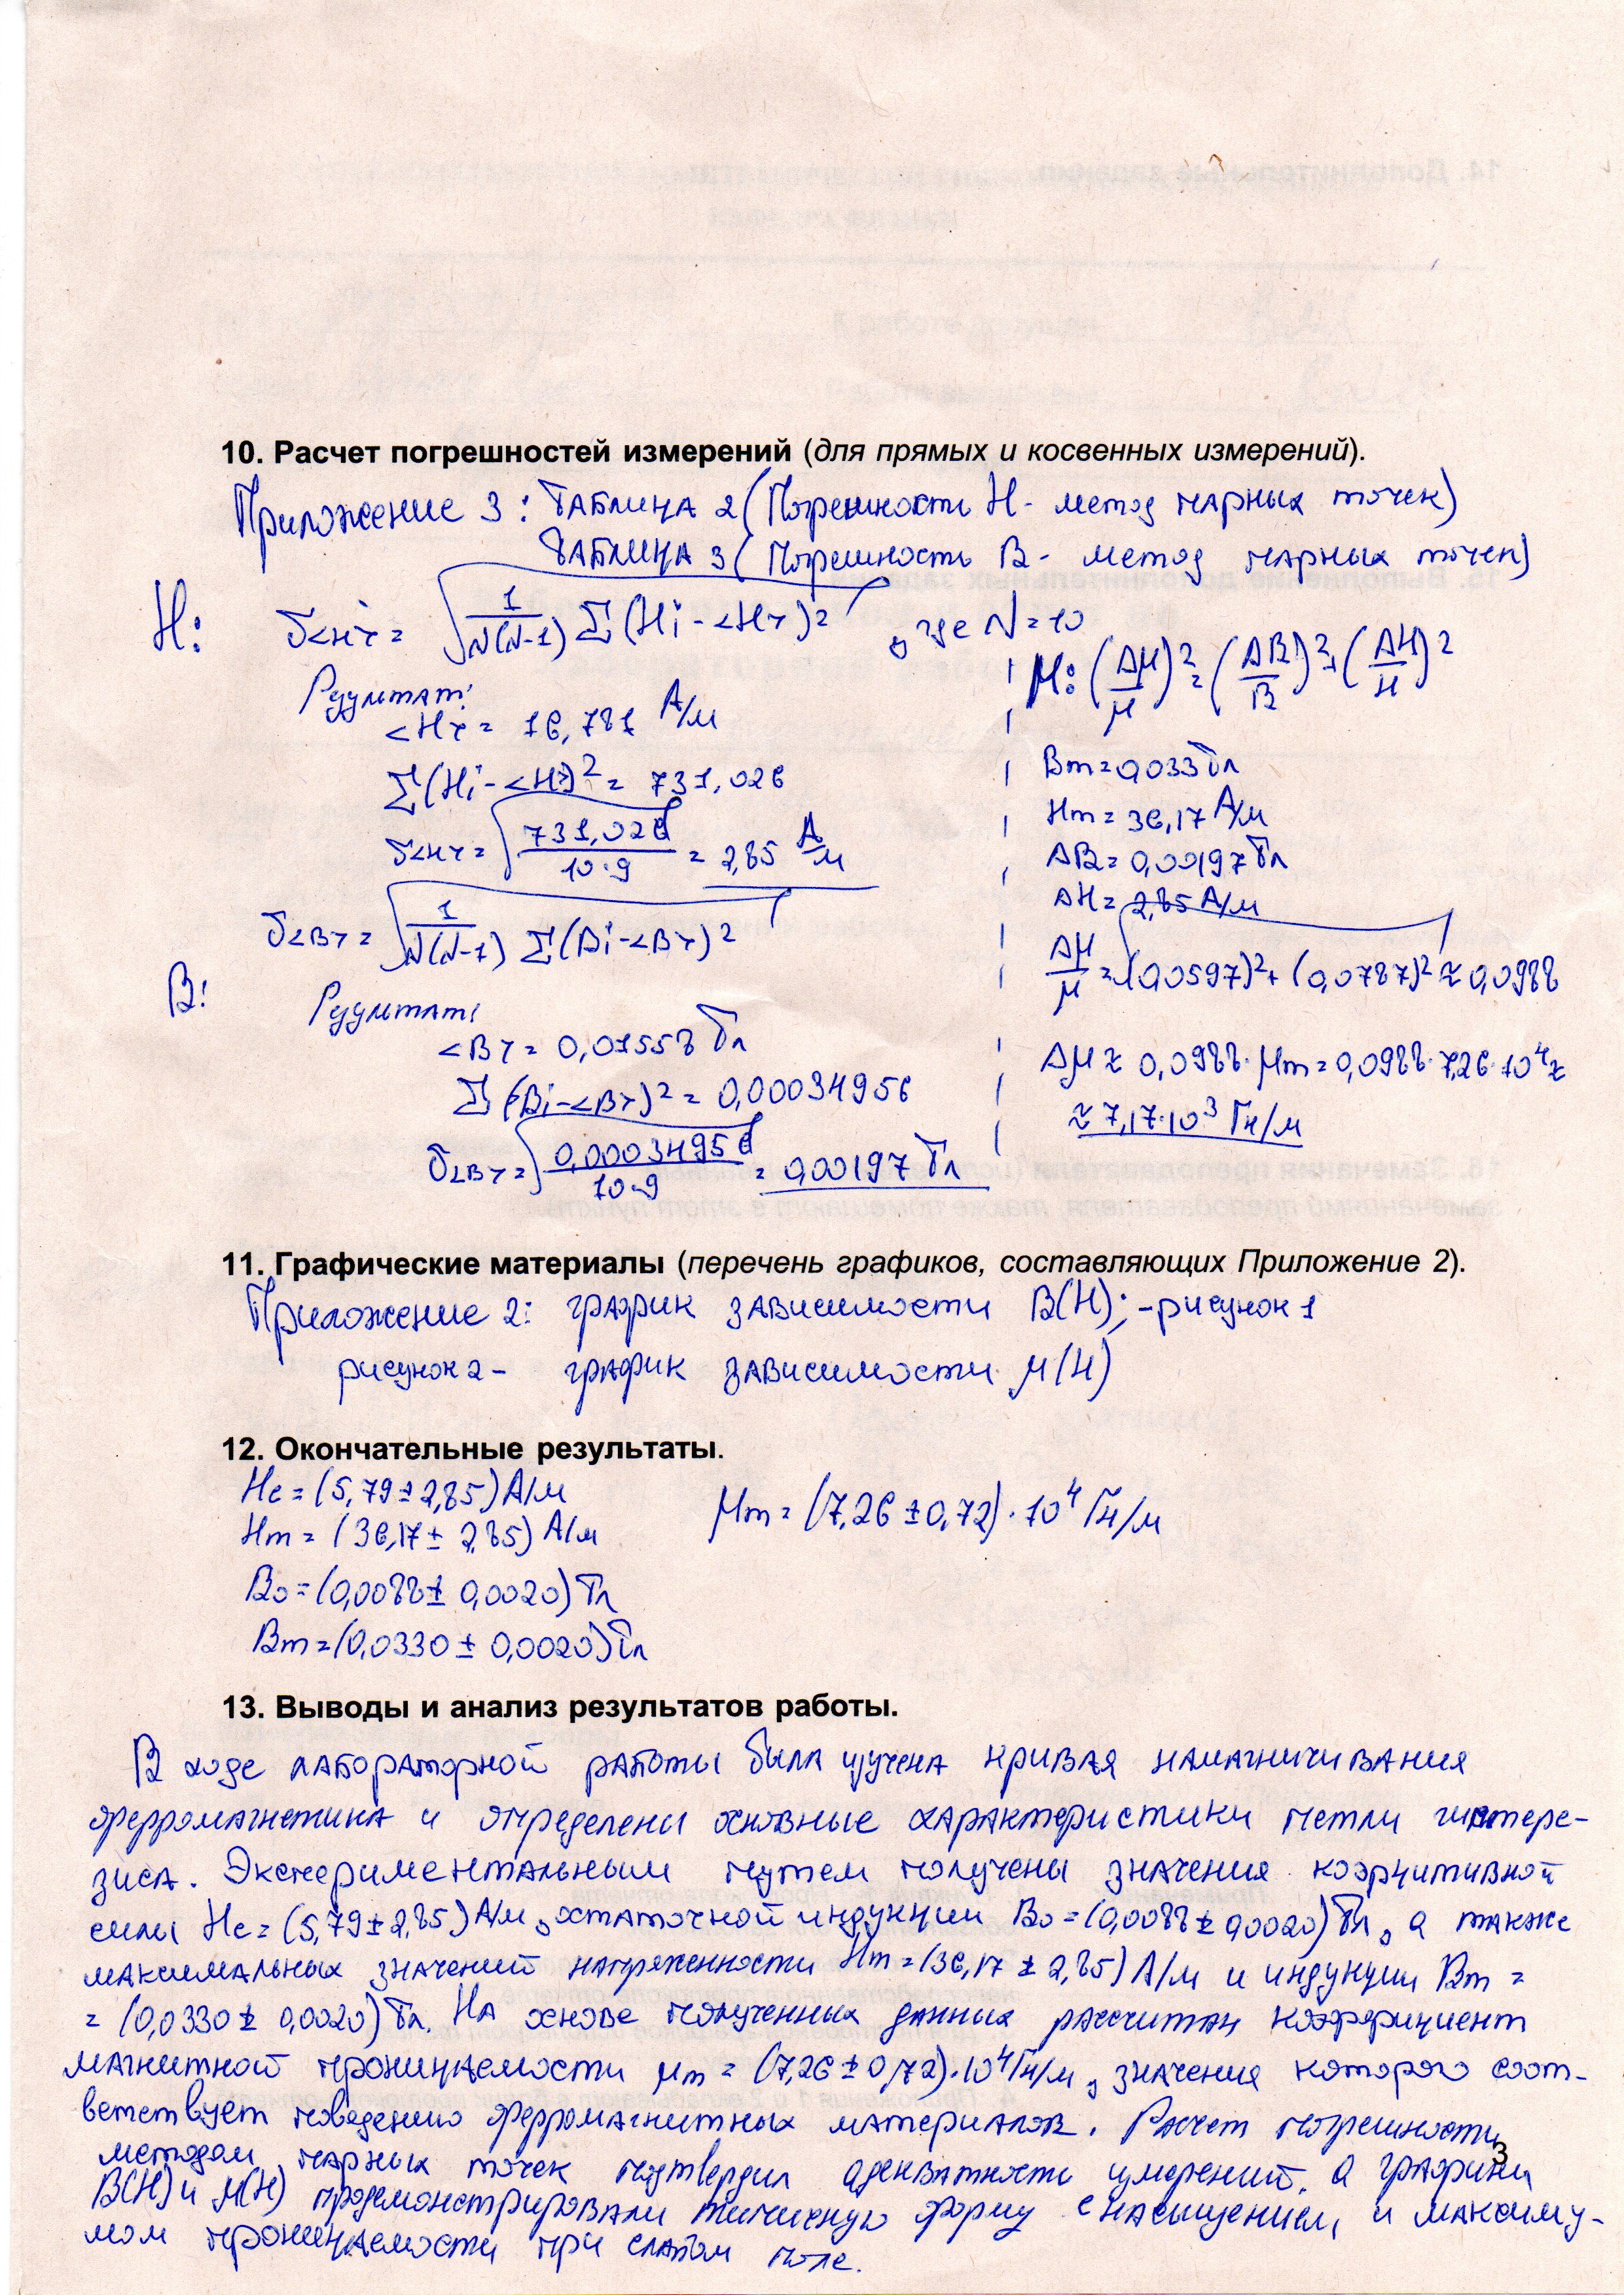 10. Расчет погрешностей измерений (для прямых и косвенных измерений).
Приложение 3: Таблица 2 (Погрешность H - метод парных точек)
Таблица 3 (Погрешность B - метод парных точек)
H: σ<H> = √(1/(N(N-1)) Σ(Hi - <H>)²), где N = 10
Результат:
<H> = 16,781 А/м
Σ(Hi - <H>)² = 731,026
σ<H> = √(731,026/(10·9)) = 2,85 А/м
σ<B> = √(1/(N(N-1)) Σ(Bi - <B>)²)
B:
Результат:
<B> = 0,01558 Тл
Σ(Bi - <B>)² = 0,00034956
σ<B> = √(0,00034956/(10·9)) = 0,00197 Тл
μ: (Δμ/μ)² = (ΔB/B)² + (ΔH/H)²
Bm = 0,033 Тл
Hm = 36,17 А/м
ΔB = 0,00197 Тл
ΔH = 2,85 А/м
Δμ/μ = √((0,0597)² + (0,0787)²) ≈ 0,0988
Δμ ≈ 0,0988 · μm = 0,0988 · 7,26 · 10⁴ ≈
≈ 7,17·10³ Гн/м
11. Графические материалы (перечень графиков, составляющих Приложение 2).
Приложение 2: график зависимости B(H); - рисунок 1
рисунок 2 - график зависимости μ(H)
12. Окончательные результаты.
Hc = (5,79 ± 2,85) А/м
Hm = (36,17 ± 2,85) А/м
B₀ = (0,0088 ± 0,0020) Тл
Bm = (0,0330 ± 0,0020) Тл
μm = (7,26 ± 0,72) · 10⁴ Гн/м
13. Выводы и анализ результатов работы.
В ходе лабораторной работы была изучена кривая намагничивания
ферромагнетика и определены основные характеристики петли гистере-
зиса. Экспериментальным путем получены значения коэрцитивной
силы Hc = (5,79 ± 2,85) А/м, остаточной индукции B₀ = (0,0088 ± 0,0020) Тл, а также
максимальных значений напряженности Hm = (36,17 ± 2,85) А/м и индукции Bm =
= (0,0330 ± 0,0020) Тл. На основе полученных данных рассчитан коэффициент
магнитной проницаемости μm = (7,26 ± 0,72)·10⁴ Гн/м, значение которого соот-
ветствует поведению ферромагнитных материалов. Расчет погрешности
методом парных точек подтвердил адекватность измерений, а графики
B(H) и μ(H) продемонстрировали типичную форму с насыщением и максиму-
мом проницаемости при слабом поле.
3